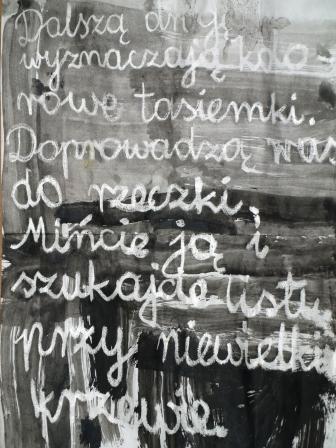 Dalszą drogę
wyznaczają kolo-
rowe tasiemki.
Doprowadzą was
do rzeczki.
Mińcie ją i
szukajcie listu
przy niewielkim
krzewie